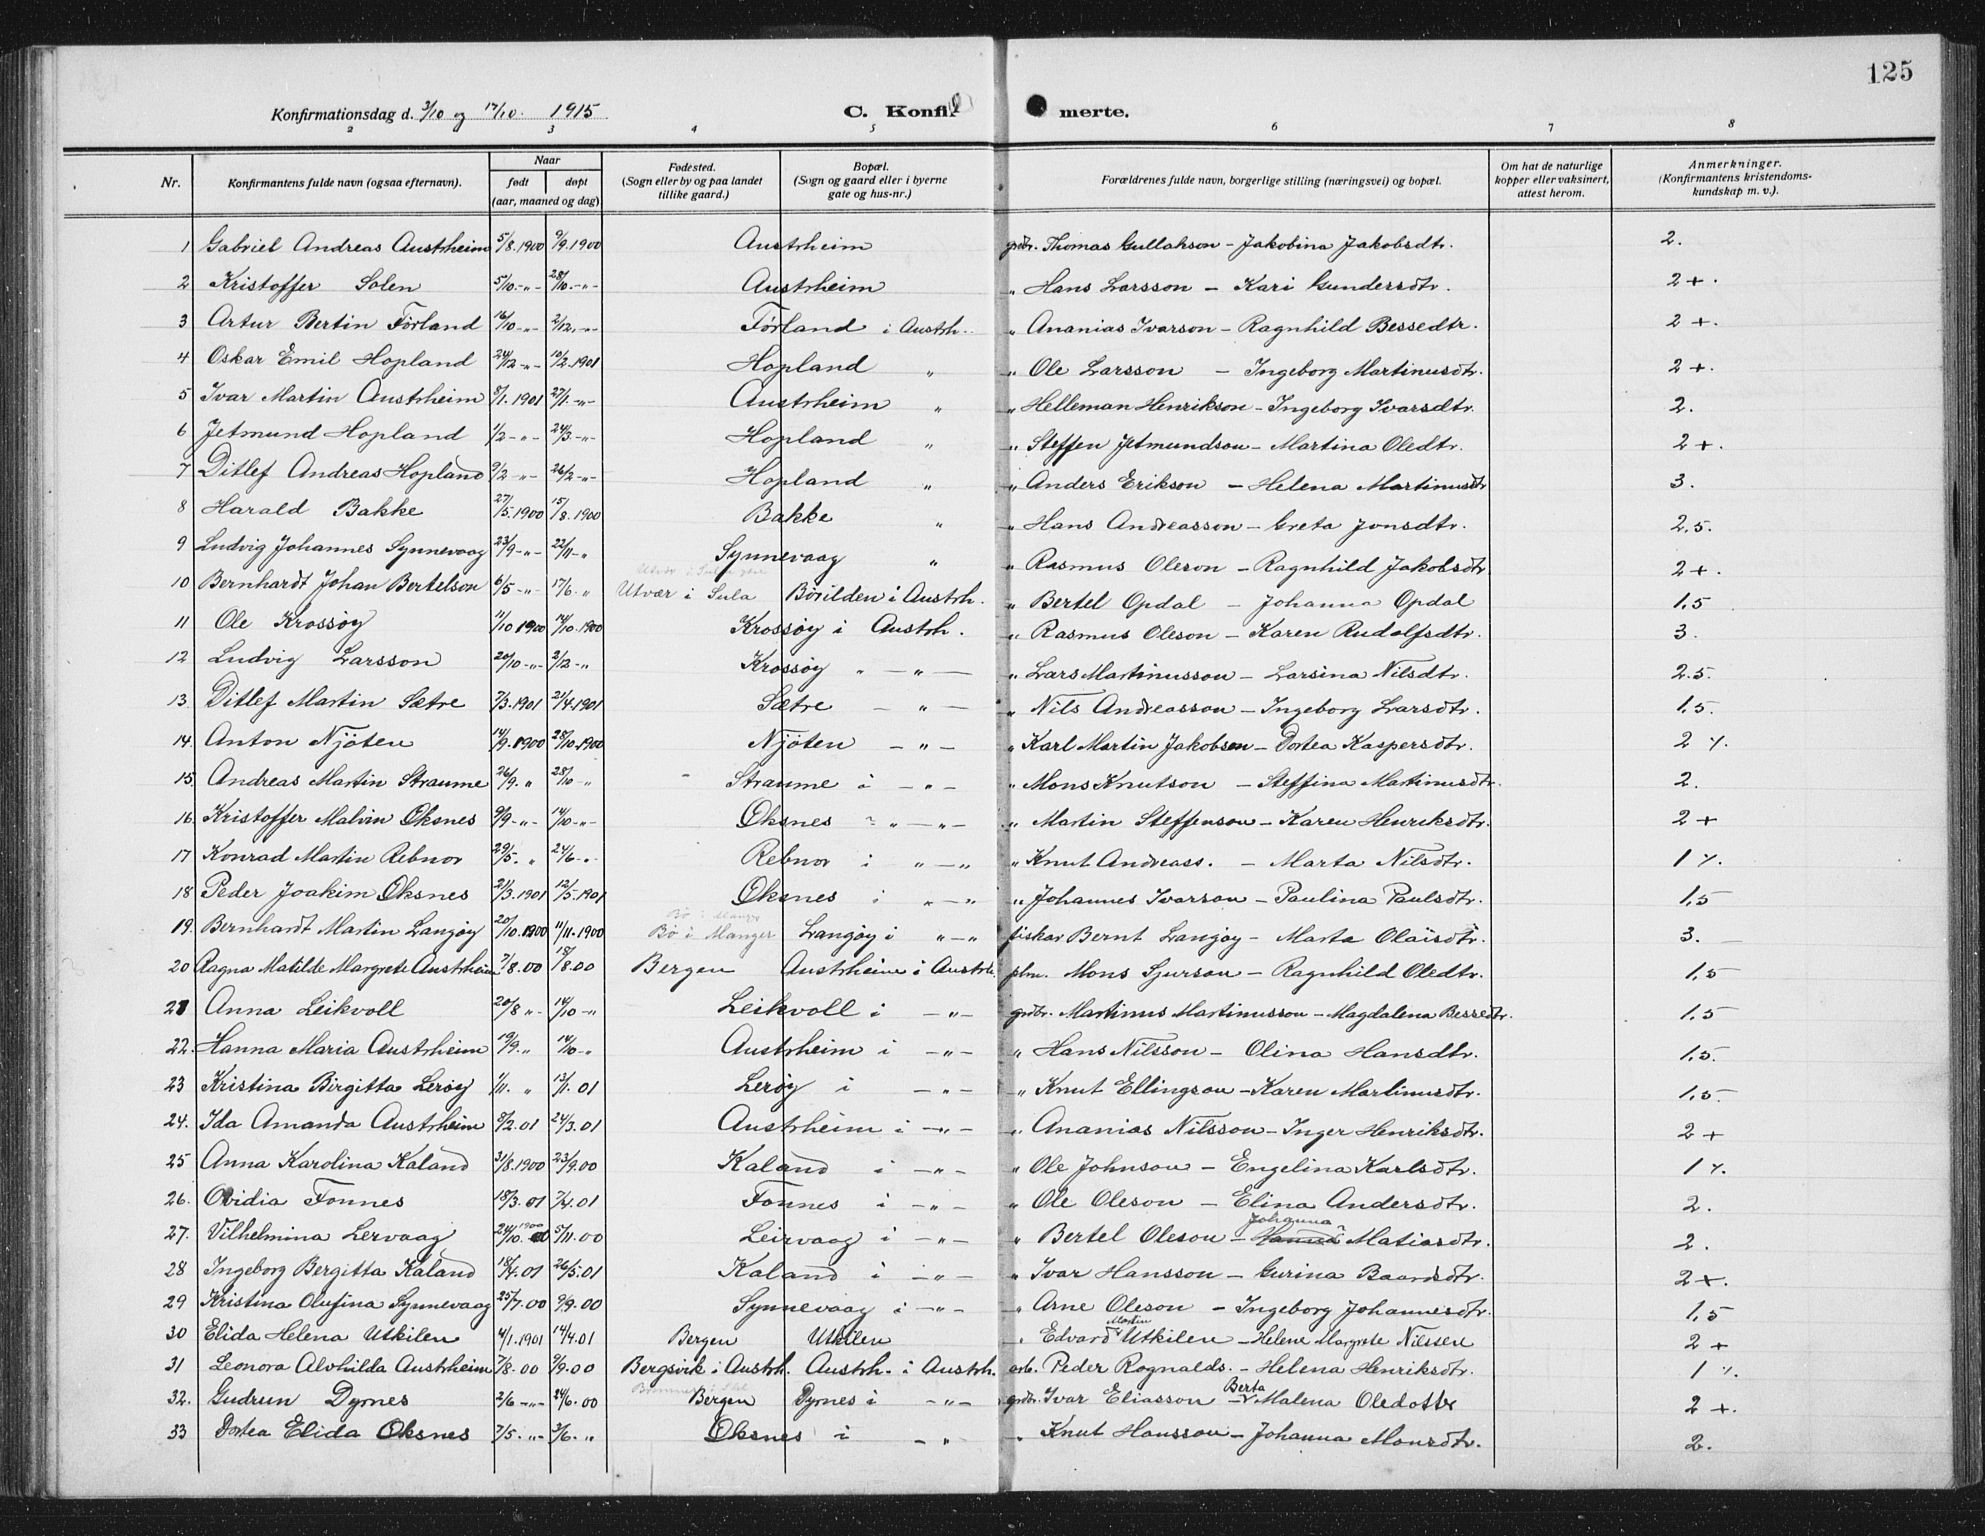 125
Konfirmationsdag d. 3/10 og 17/10 1915 C. Konfir merte.
2 3 4 5 6 7 8
Nr. Konfirmantens fulde navn (ogsaa efternavn). Naar født døpt (aar, maaned og dag) Fødested. (Sogn eller by og paa landet tillike gaard.) Bopæl. (Sogn og gaard eller i byerne gate og hus-nr.) Forældrenes fulde navn, borgerlige stilling (næringsvei) og bopæl. Om hat de naturlige kopper eller vaksinert, attest herom. Anmerkninger. (Konfirmantens kristendoms-kundskap m. v.).
1 Gabriel Andreas Austrheim 5/8.1900 9/9.1900 Austrheim grdbr. Thomas Gullakson - Jakobina Jakobsdtr. 2.
2 Kristoffer Solen 5/10-"- 28/10.-"- Austrheim " Hans Larsson - Kari Gundersdtr. 2+.
3 Artur Bertin Förland 16/10-"- 2/12.-"- Førland i Austrh. " Ananias Ivarson - Ragnhild Bessedtr. 2+.
4 Oskar Emil Hopland 24/12-"- 10/2.1901 Hopland " " Ole Larsson - Ingeborg Martinusdtr. 2+.
5 Ivar Martin Austrheim 8/1.1901 27/1.-"- Austrheim " " Helleman Henrikson - Ingeborg Ivarsdtr. 2.
6 Jetmund Hopland 1/2-"- 24/3-"- Hopland " " Steffen Jetmundson - Martina Oledtr. 2+.
7 Ditlef Andreas Hopland 9/2-"- 26/2-"- Hopland " " Anders Erikson - Helena Martinusdtr 3.
8 Harald Bakke 27/5.1900 15/8.1900 Bakke " " Hans Andreasson - Greta Jonsdtr. 2.5.
9 Ludvig Johannes Synnevaag 23/9-"- 22/11-" Synnevaag " " Rasmus Oleson - Ragnhild Jakobsdtr. 2+.
10 Bernhardt Johan Bertelson 6/5-"- 17/6." Utvær i Sula Børilden i Austrh. " Bertel Opdal - Johanna Opdal 1,5
11 Ole Krossøy 11/10 1900 14/10.1900 Krossøy i Austrh. " Rasmus Oleson - Karen Rudolfsdtr. 3.
12 Ludvig Larsson 20/10-"- 2/12-" Krossøy " - " - " Lars Martinusson - Larsina Nilsdtr. 2.5.
13. Ditlef Martin Sætre 7/3.1901 21/4.1901 Sætre - " - " Nils Andreasson - Ingeborg Larsdtr. 1.5.
14. Anton Njöten 14/9.1900 28/10.1900 Njöten - " - " Karl Martin Jakobsen - Dortea Kaspersdtr. 2 %.
15. Andreas Martin Straume 26/9. " 28/10-" Straume i - " - " Mons Knutson - Steffina Martinusdtr. 2.
16. Kristoffer Malvin Oksnes 9/9-"- 14/10-"- Oksnes " - " - " Martin Steffenson - Karen Henriksdtr. 2+
17 Konrad Martin Rebnor 29/5. " 24/6-". Rebnor i " - " " Knut Andreass. - Marta Nilsdtr. 1 %.
18 Peder Joakim Oksnes 21/3.1901 12/5.1901 Oksnes i " - " " Johannes Ivarson - Paulina Paulsdtr. 1,5
19. Bernhardt Martin Langøy 20/10.1900 11/11.1900 Bø i Manger Langøy i " - " fiskar Bernt Langøy - Marta Olaisdtr. 3.
20 Ragna Matilde Margrete Austrheim 7/8.00 18/8.00 Bergen Austrheim i Austrh. Mons Sjurson - Ragnhild Oledtr. 1.5
21 Anna Leikvoll 20/8 "- 14/10-" Leikvoll i - " - grdbr. Martinus Martinusson - Magdalena Bessedtr. 1.5
22. Hanna Maria Austrheim 19/9. " 14/10-" Austrheim i - " - " Hans Nilsson - Olina Hansdtr. 1.5.
23 Kristina Birgitta Lerøy 1/11. " 13/1.01 Lerøy i - " - " Knut Ellingson - Karen Martinusdtr. 1.5.
24. Ida Amanda Austrheim 8/2.01 24/3.01 Austrheim i - " - " Ananias Nilsson - Inger Henriksdtr. 2+
25 Anna Karolina Kaland 31/8.1900 23/9.00 Kaland i - " - " Ole Johnson - Engelina Karlsdtr. 1 %.
26. Ovidia Fonnes 18/3.01 7/4.01 Fonnes i - " - " Ole Oleson - Elina Andersdtr. 2.
27. Vilhelmina Lervaag 24/10. 1900 5/11.00 Leirvaag i - " - " Bertel Oleson - Johanna Matiasdtr. 2.
28 Ingeborg Bergitta Kaland 18/4.01 26/5.01 Kaland i - " - " Ivar Hansson - Gurina Baardsdtr. 2+.
29 Kristina Olufina Synnevaag 25/7.00 9/9.00 Synnevaag i - " - " Arne Oleson - Ingeborg Johannesdtr. 1,5
30 Elida Helena Utkilen 4/1.1901 14/4.01 Bergen Utkilen " Edvard Martin Utkilen - Helene Margrete Nilssen 2+
31 Leonora Alvhilda Austrheim 7/8.00 9/9.00 Bergsvik i Austrh. Austrh. i Austrh. arb. Peder Rognalds. - Helena Henriksdtr. 1 %.
32. Gudrun Dyrnes 2/6-"- 24/6.00 Bergen Dyrnes i - " - grdbr. Ivar Eliasson - Berta Malena Oledotter 2+.
33 Dortea Elida Oksnes 7/5. "- 3/6. " Oksnes i - " " Knut Hansson - Johanna Monsdtr. 2.